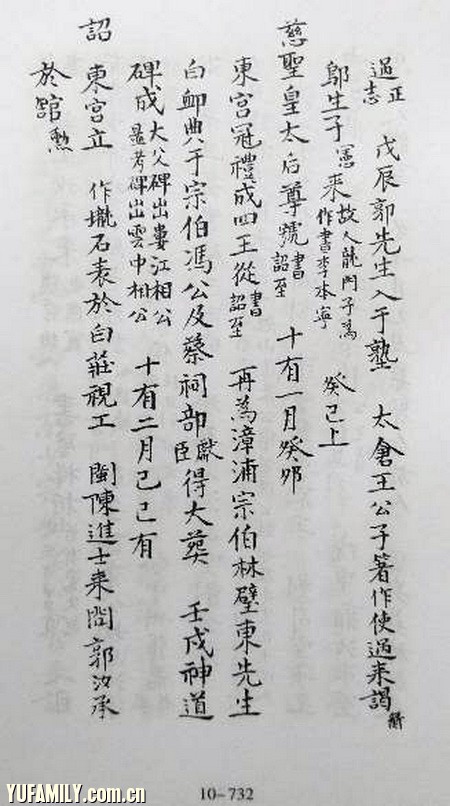 過正志 戊辰郭先生入于塾 太倉王公子著作使過來謁
鄔生子憲來故人龍門子為作書李本寧 癸巳上
慈聖皇太后尊號書詔至 十有一月癸卯
東宮冠禮成四王從書詔至 再為漳浦宗伯林璧東先生
白卹典于宗伯馮公及蔡祠部獻臣得大葬 壬戌神道
碑成大父碑出婁江相公顯考碑出雲中相公 十有二月己巳有
詔東宮立 作壠石表於白莊視工 閩陳進士來問郭汝承
於館勲
10-732
YUFAMILY.com.cn